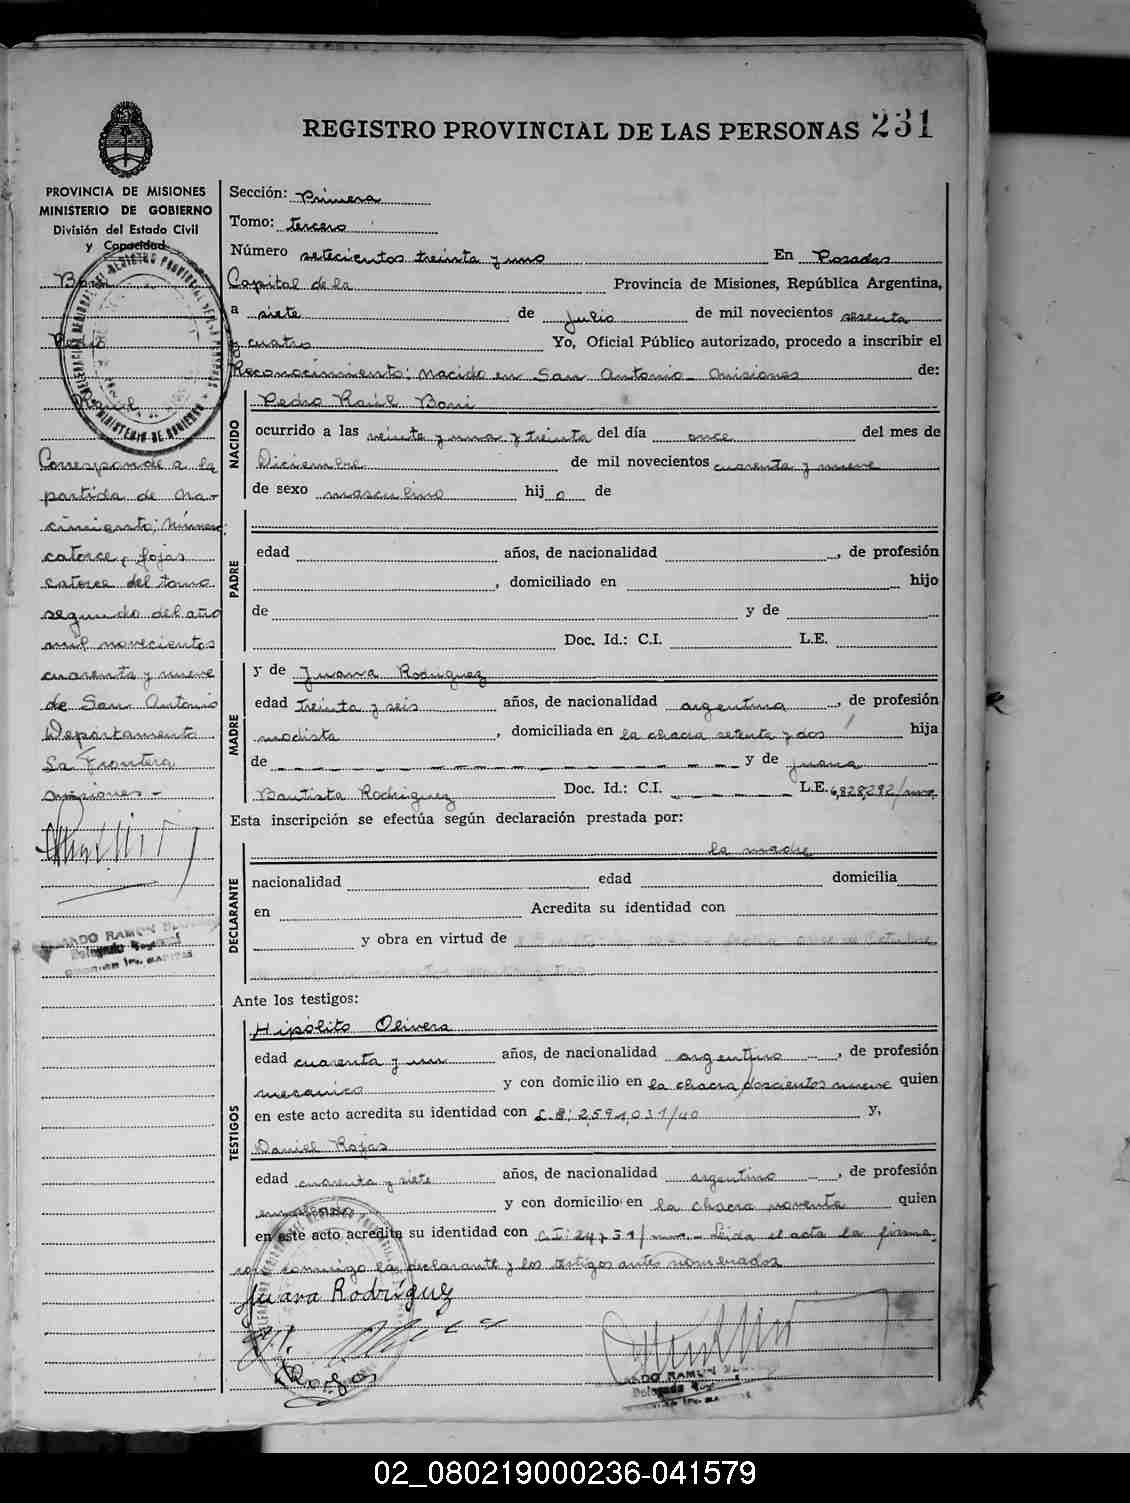 REGISTRO PROVINCIAL DE LAS PERSONAS 231
PROVINCIA DE MISIONES
MINISTERIO DE GOBIERNO
División del Estado Civil
y Capacidad
Corresponde a la
partida de Na-
cimiento; Número:
catorce, fojas
catorce del tomo
segundo del año
mil novecientos
cuarenta y nueve
de San Antonio
Departamento
La Frontera
Misiones -
Sección: Primera
Tomo: tercero
Número setecientos treinta y uno En Posadas
Capital de la Provincia de Misiones, República Argentina,
a siete de Julio de mil novecientos sesenta
y cuatro Yo, Oficial Público autorizado, procedo a inscribir el
Reconocimiento: Nacido en San Antonio - Misiones de:
NACIDO
Pedro Raúl Boni
ocurrido a las veinte y una y treinta del día once del mes de
Diciembre de mil novecientos cuarenta y nueve
de sexo masculino hij o de
PADRE
edad años, de nacionalidad , de profesión
, domiciliado en hijo
de y de
Doc. Id.: C.I. L.E.
MADRE
y de Juana Rodriguez
edad treinta y seis años, de nacionalidad argentina , de profesión
modista , domiciliada en la chacra setenta y dos hija
de y de Juana
Bautista Rodriguez Doc. Id.: C.I. L.E. 6,828,292/
Esta inscripción se efectúa según declaración prestada por:
DECLARANTE
la madre
nacionalidad edad domicilia
en Acredita su identidad con
y obra en virtud de
Ante los testigos:
TESTIGOS
Hipólito Olivera
edad cuarenta y un años, de nacionalidad argentino , de profesión
mecanico y con domicilio en la chacra doscientos nueve quien
en este acto acredita su identidad con 2,591,031/40 y,
Daniel Rojas
edad cuarenta y siete años, de nacionalidad argentino , de profesión
empleado y con domicilio en la chacra noventa quien
en este acto acredita su identidad con C.I: Leida el acta la firma
con conmigo la declarante y los testigos antes nombrados
Juana Rodríguez
Rojas
02_080219000236-041579